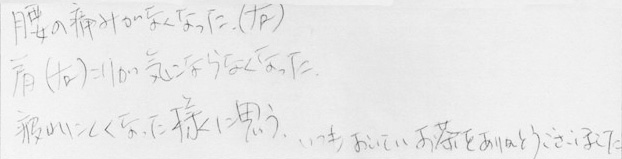 腰の痛みがなくなった.(右)
肩(右)こりが気にならなくなった.
疲れにくくなった様に思う. いつもおいしいお茶をありがとうございました